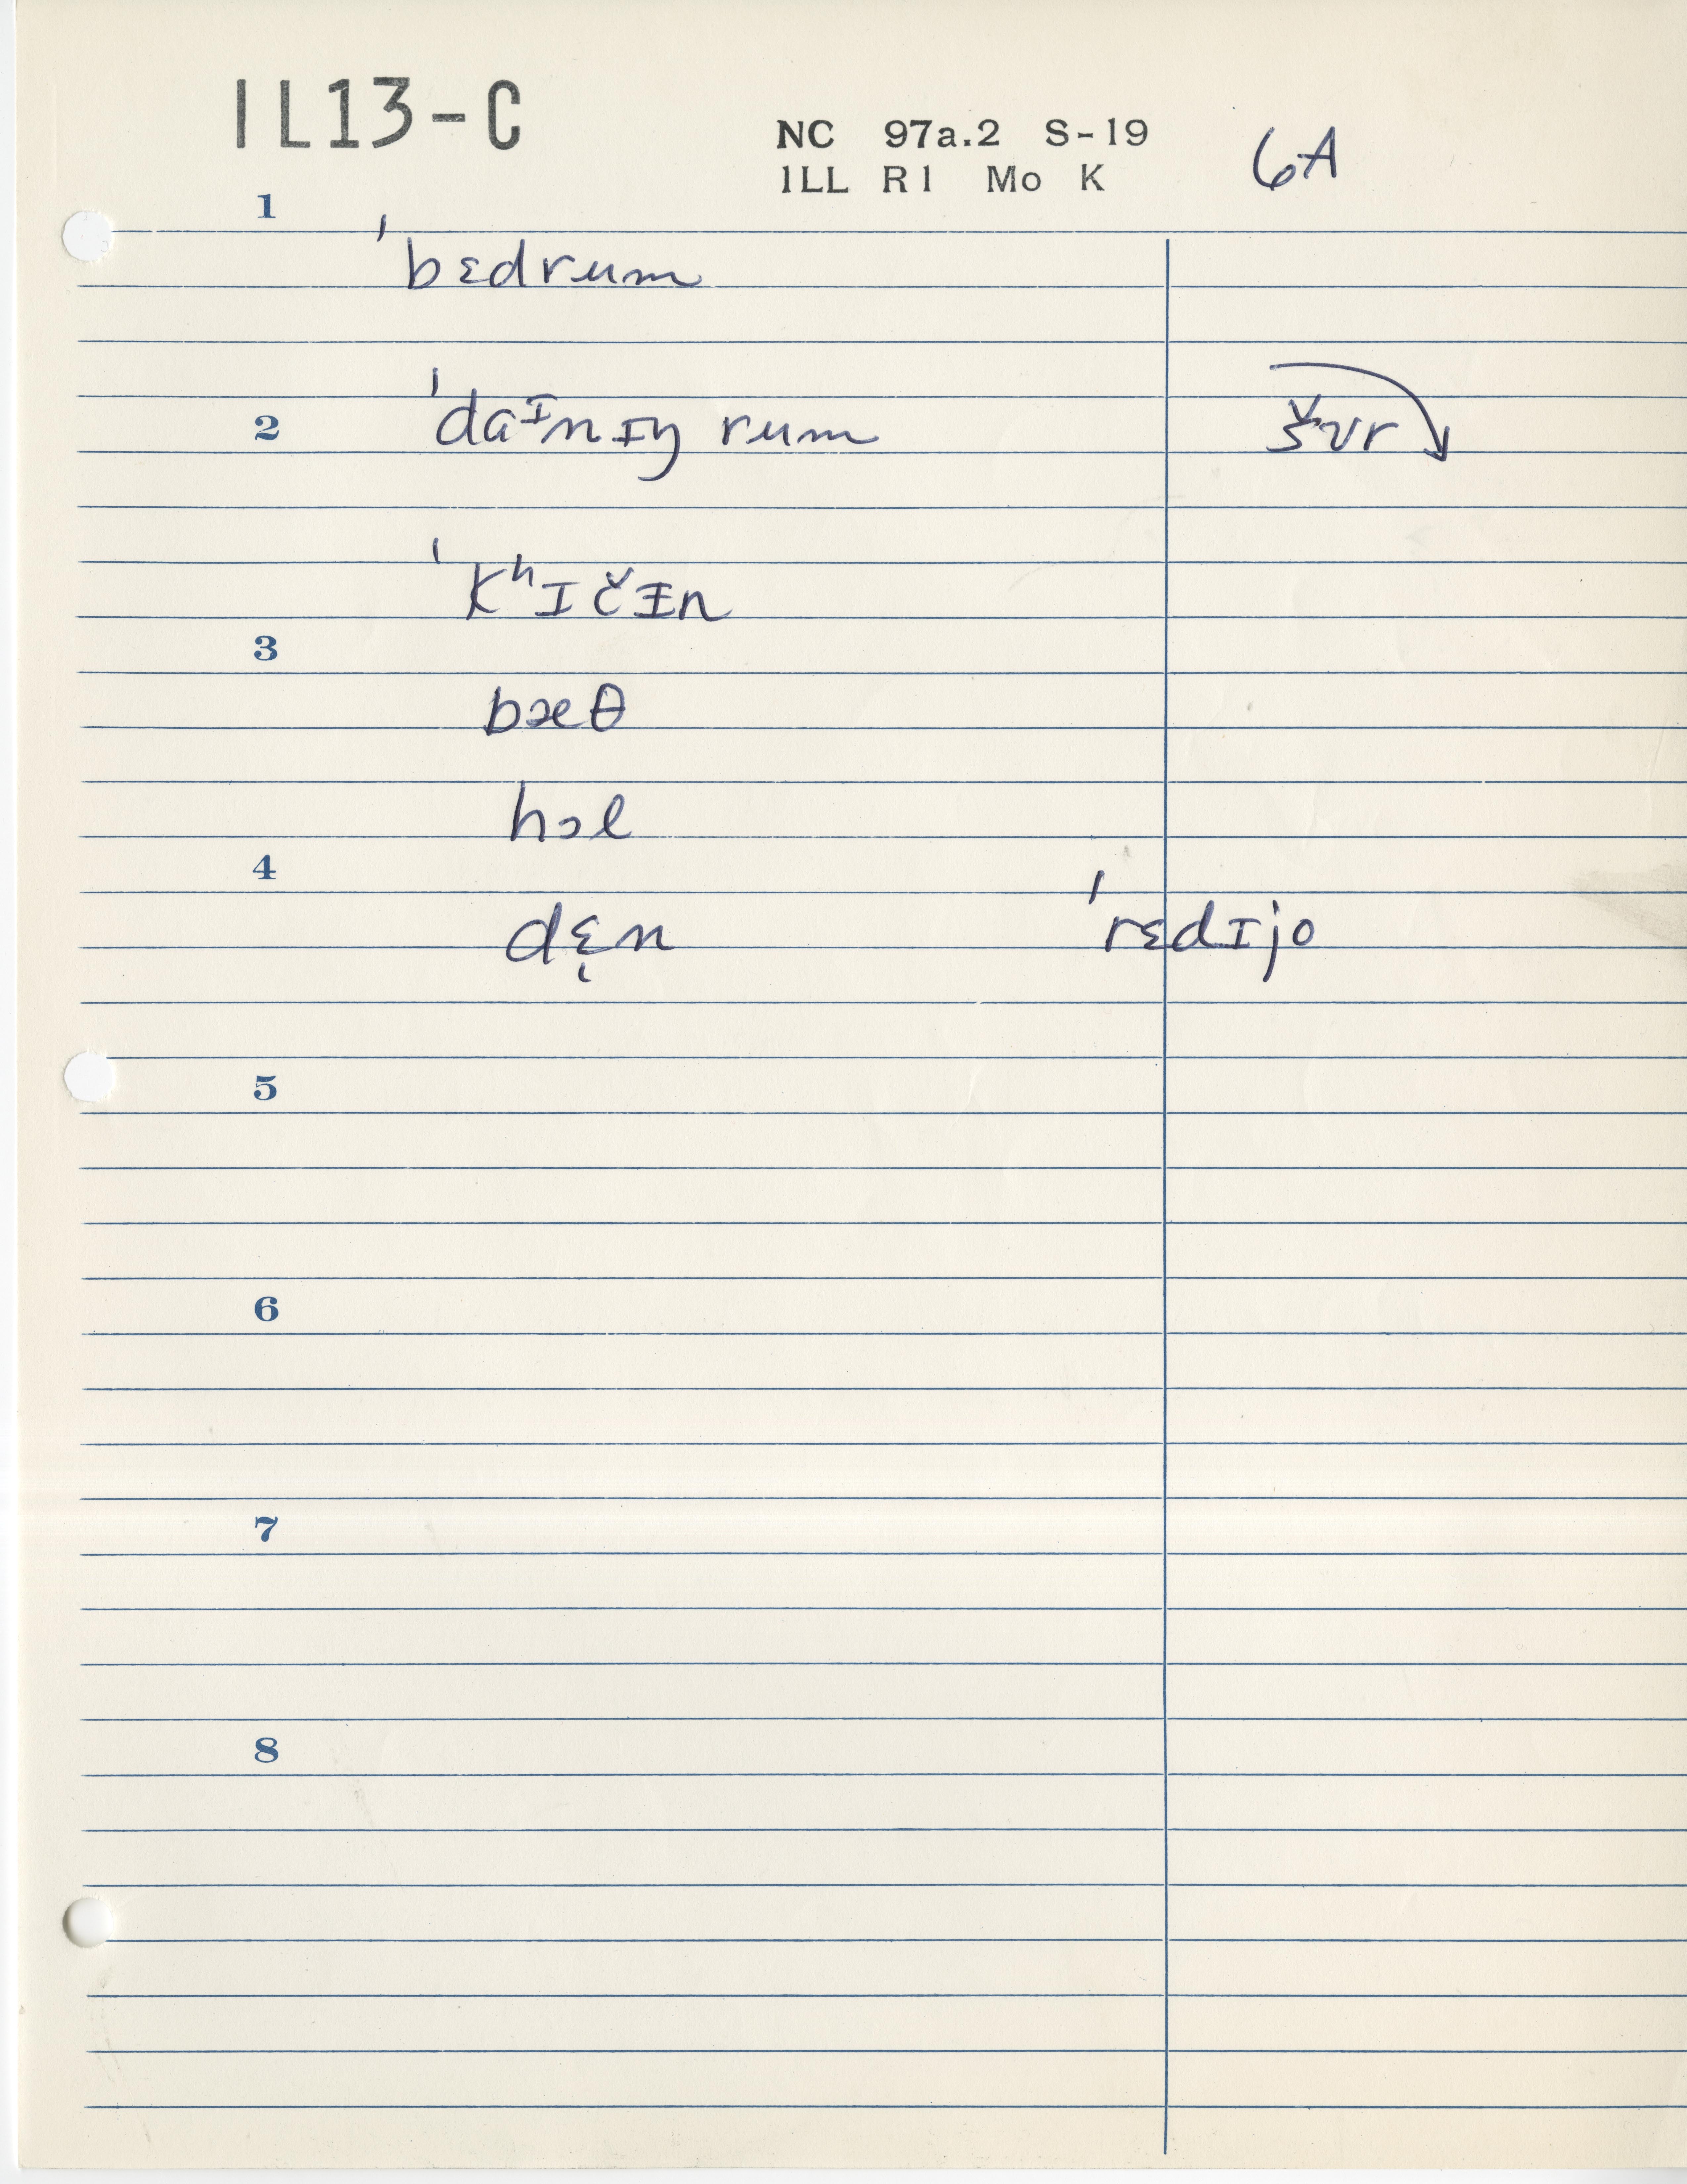 IL13-C
NC 97a.2 S-19 6A
ILL R1 Mo K
1
ˈbɛdrum
2 ˈdaᶦnɪŋ rum šʊr
ˈkʰɪčɨn
3
bæθ
hɔl
4
dɛ̩n ˈrɛdɪjo
5
6
7
8